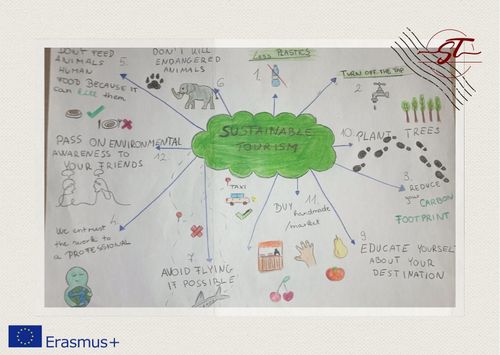 DON'T FEED
ANIMALS 5.
HUMAN
FOOD BECAUSE IT
can kill them
DON'T KILL
ENDANGERED
ANIMALS
6.
Less PLASTICS
1.
TURN OFF THE TAP
2.
ST
SUSTAINABLE
TOURISM
10. PLANT TREES
PASS ON ENVIRONMENTAL
AWARENESS TO
YOUR FRIENDS
12.
TAXI
3. REDUCE
your CARBON
FOOTPRINT
BUY 11.
handmade
/market
We entrust
the work to
a PROFESSIONAL
4.
7.
AVOID FLYING
IF POSSIBLE
9.
EDUCATE YOURSELF
ABOUT YOUR
DESTINATION
Erasmus+